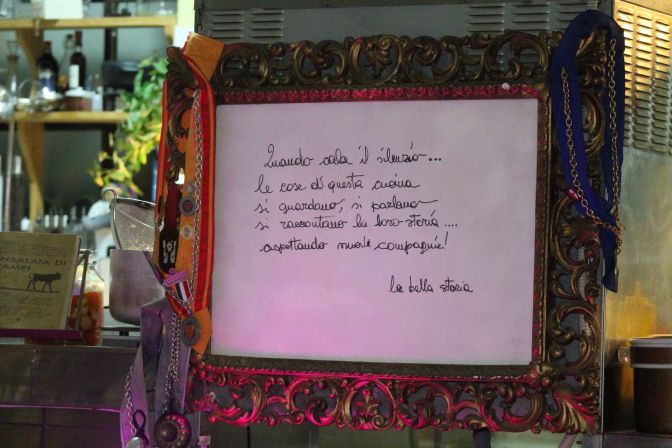 Quando cala il silenzio...
le cose di questa cucina
si guardano, si parlano
si raccontano la loro storia....
aspettando nuove compagnie!
la bella storia
NSALATA DI
CAMPI